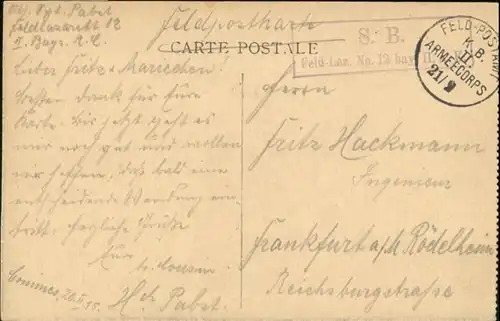 Abs. Opt. Pabst
Feldlazarett 12
II. Bayr. A. C.
Feldpostkarte
CARTE POSTALE
S. B.
Feld-Laz. No. 12 bay. II.
FELD-POSTAMT
K. B.
II.
ARMEECORPS
21/
Lieber Fritz & Mariechen!
Besten Dank für Eure
Karte. Bis jetzt geht es
mir noch gut und wollen
wir hoffen, daß bald eine
entscheidende Wendung ein-
tritt. Herzliche Grüße
Euer
tr. Cousin
Hch. Pabst.
Comines, 20.II.15.
Herrn
Fritz Hackmann
Ingenieur
Frankfurt a/M Rödelheim
Reichsburgstraße